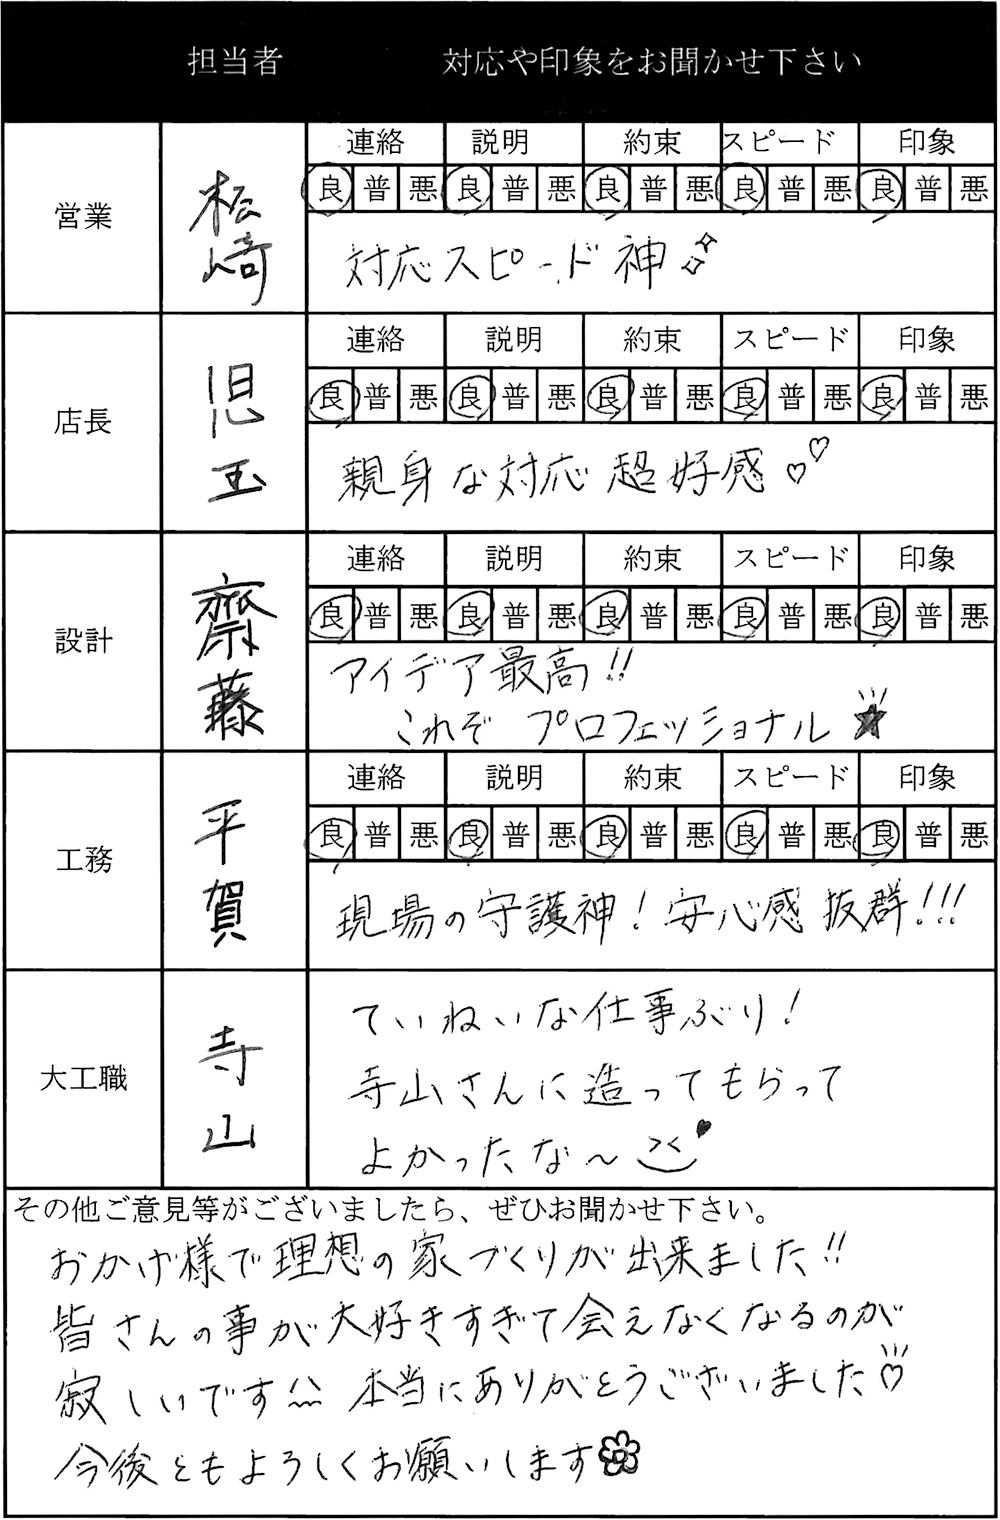 担当者 対応や印象をお聞かせ下さい
連絡 説明 約束 スピード 印象
営業 松崎 良 普 悪 良 普 悪 良 普 悪 良 普 悪 良 普 悪
対応スピード神
連絡 説明 約束 スピード 印象
店長 児玉 良 普 悪 良 普 悪 良 普 悪 良 普 悪 良 普 悪
親身な対応 超好感
連絡 説明 約束 スピード 印象
設計 齋藤 良 普 悪 良 普 悪 良 普 悪 良 普 悪 良 普 悪
アイデア最高!!
これぞ プロフェッショナル★
連絡 説明 約束 スピード 印象
工務 平賀 良 普 悪 良 普 悪 良 普 悪 良 普 悪 良 普 悪
現場の守護神!安心感 抜群!!!
大工職 寺山 ていねいな仕事ぶり!
寺山さんに造ってもらって
よかったな〜
その他ご意見等がございましたら、ぜひお聞かせ下さい。
おかげ様で理想の家づくりが出来ました!!
皆さんの事が大好きすぎて会えなくなるのが
寂しいです 本当にありがとうございました♡
今後ともよろしくお願いします